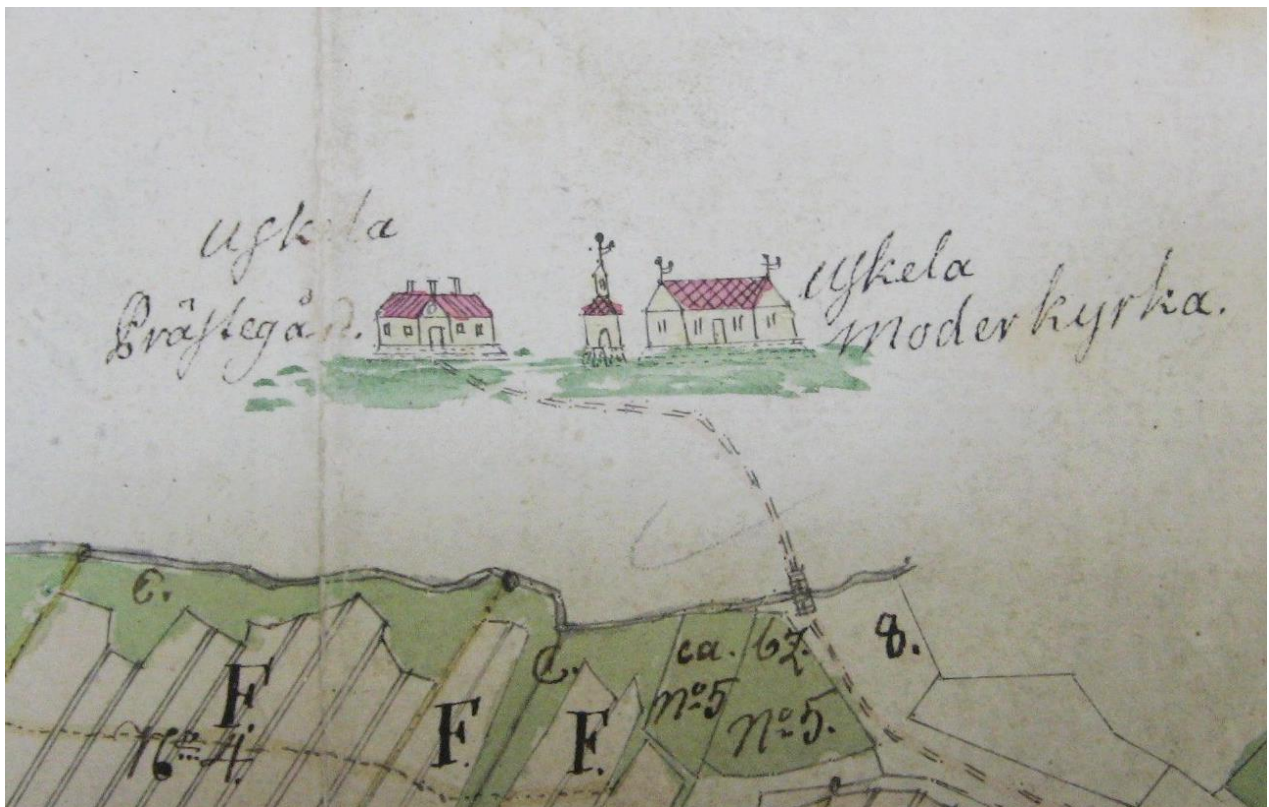 Uskela
Prästegård.
Uskela
Moderkyrka.
C.
F.
F.
F.
C.
ca.
8.
No 5
No 5.
No 4.